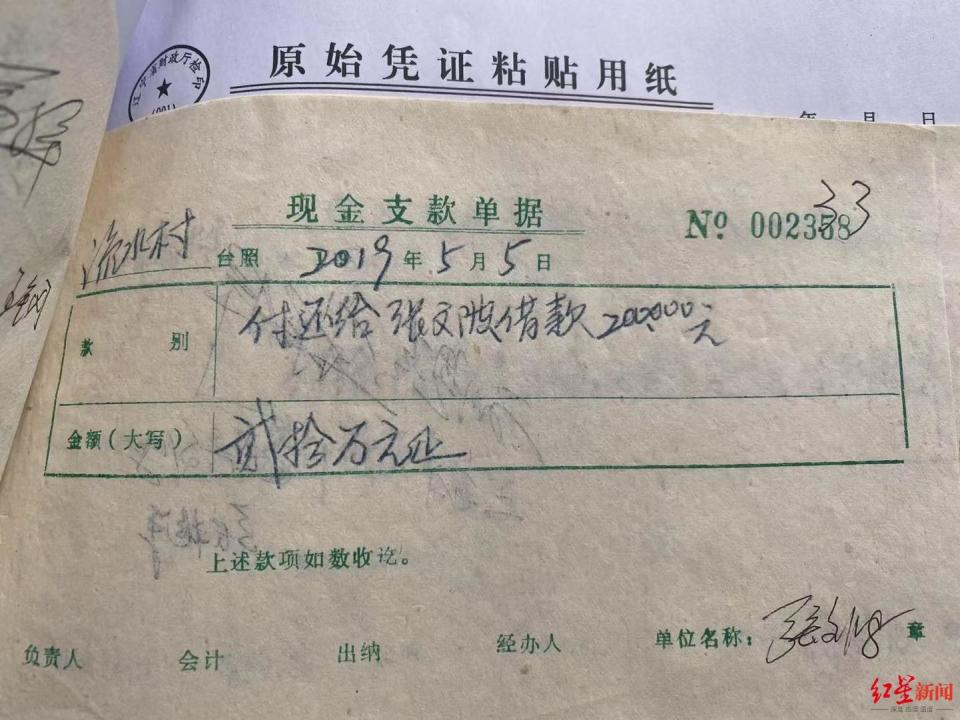 原始凭证粘贴用纸
省财政厅检印
(001)
年 月 日
现金支款单据
№ 002358
33
流水村 台照 2019年5月5日
款 别 付还给张文波借款200000元
金额(大写) 贰拾万元正
上述款项如数收讫。
负责人 会计 出纳 经办人 单位名称: 章
红星新闻
深度 态度 温度